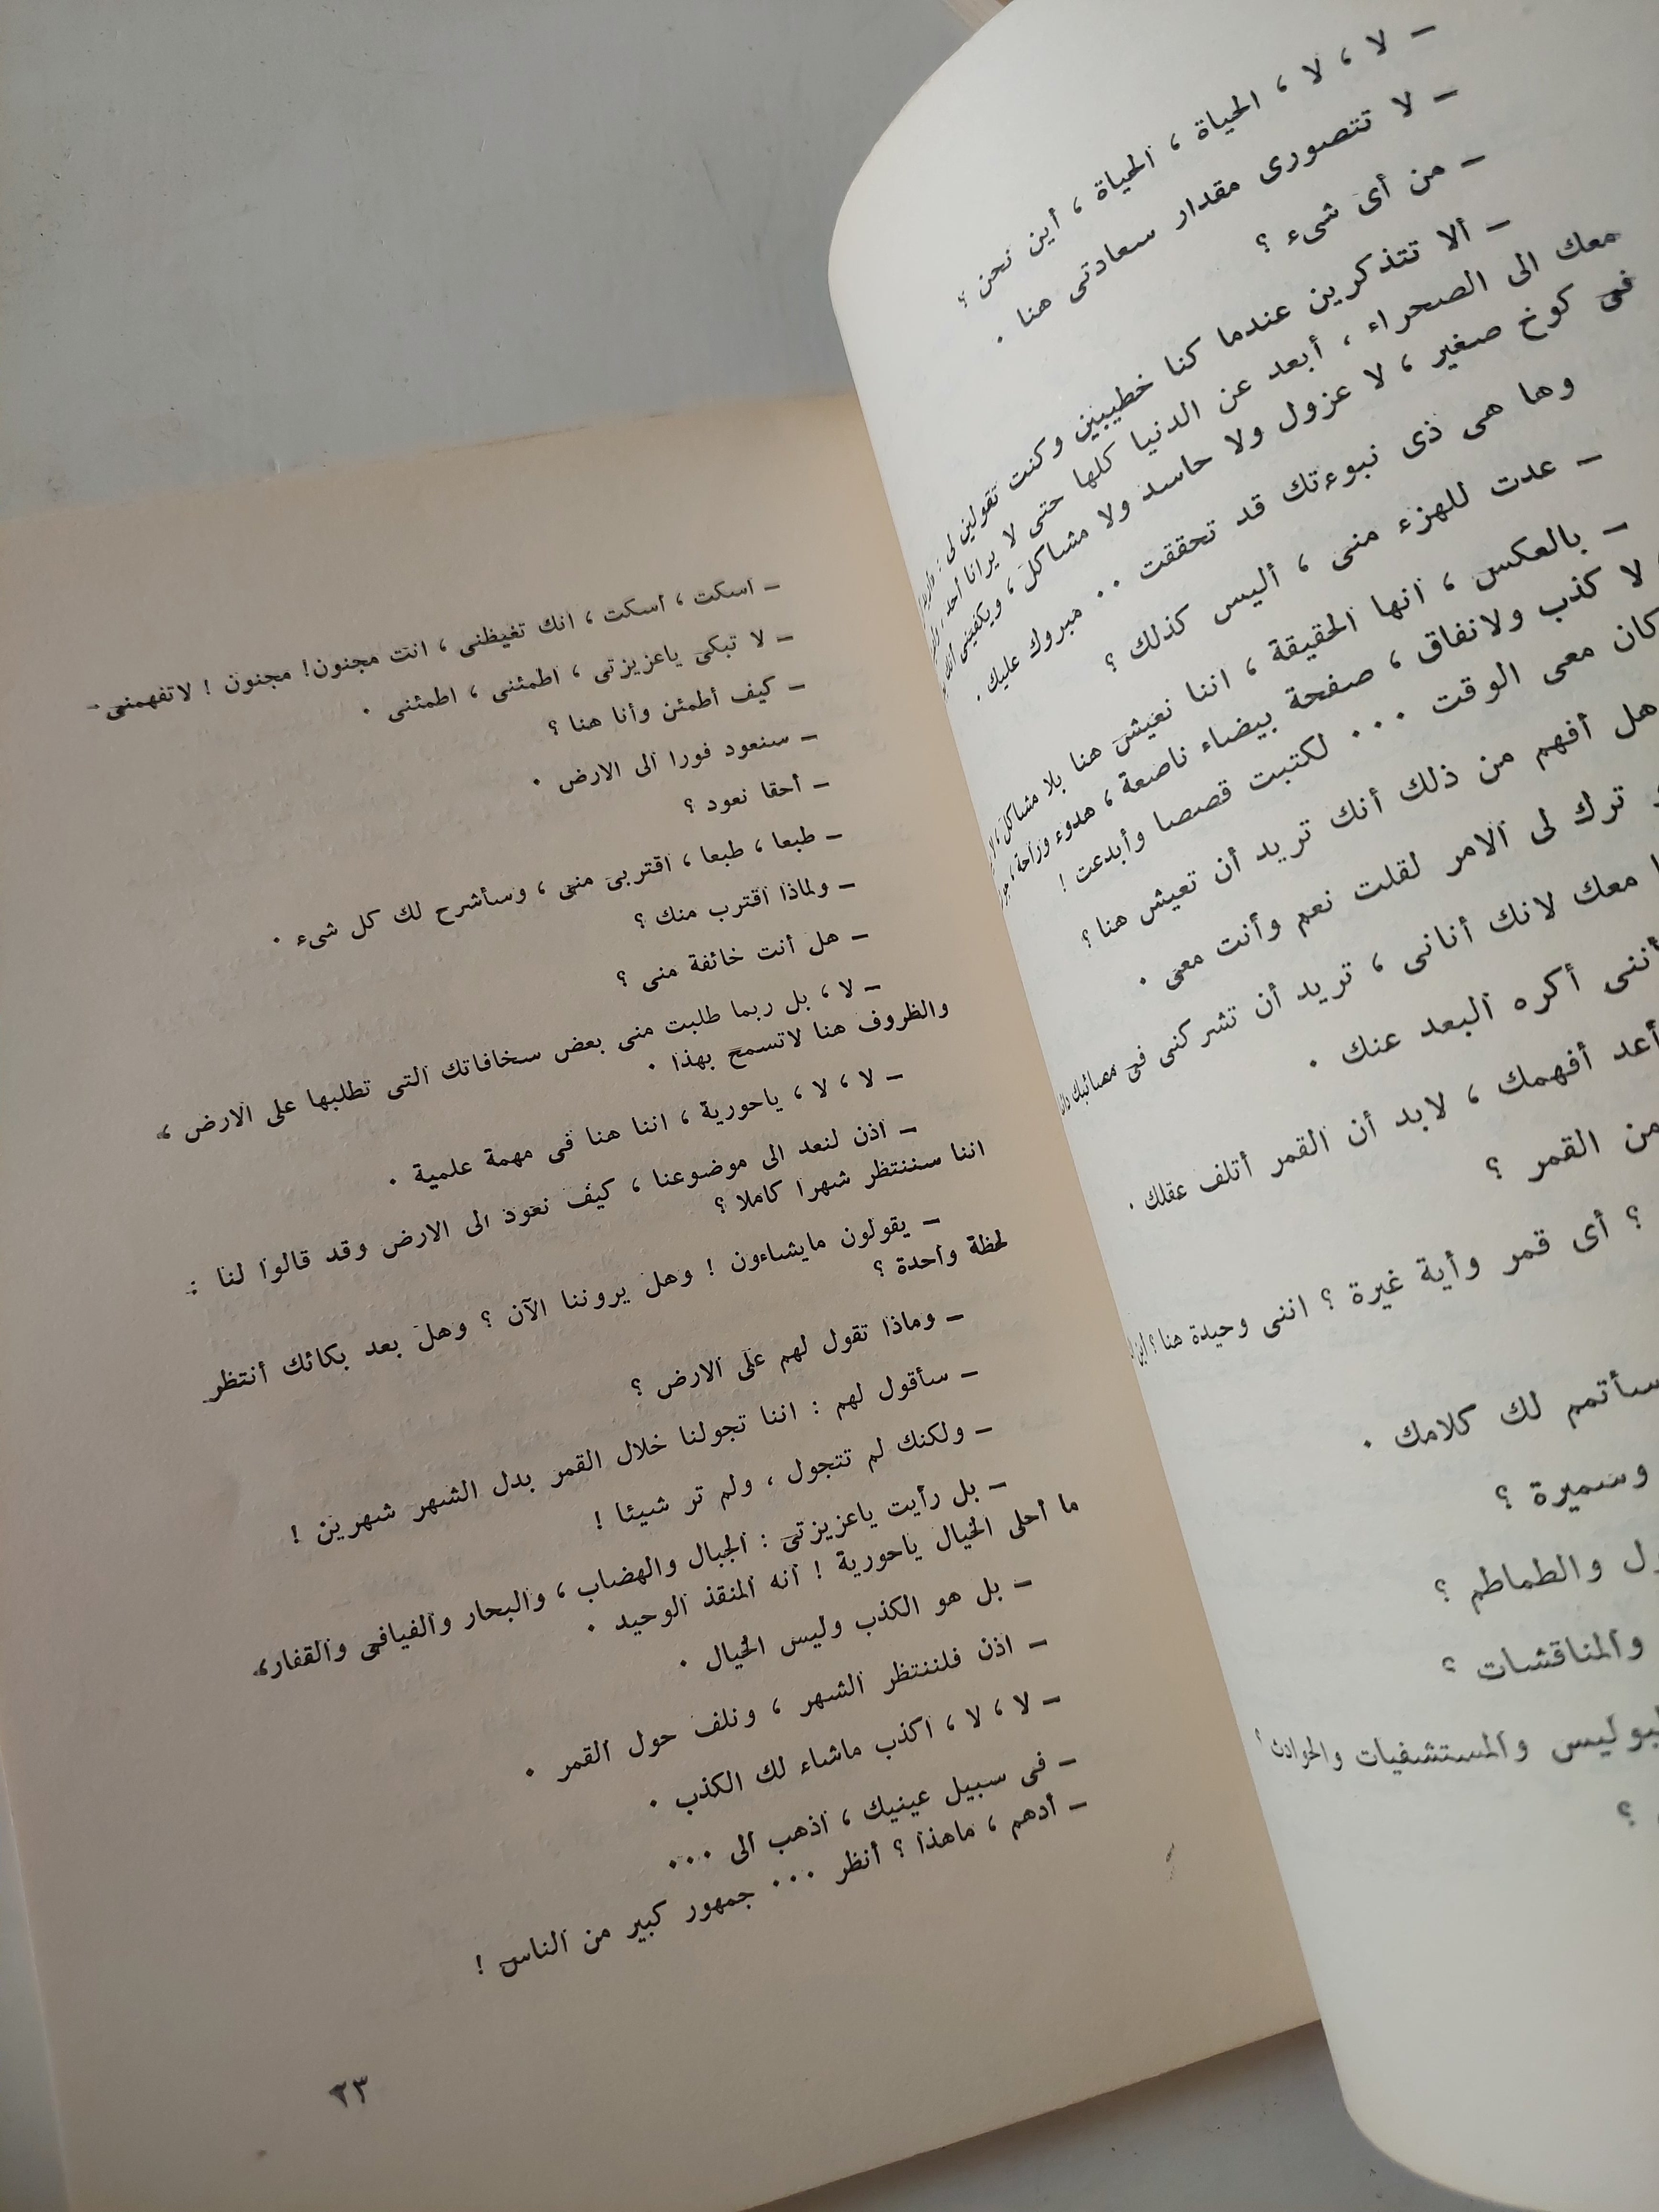 – لا ، لا ، الحياة ، الحياة ، أين نحن ؟
– لا تتصورى مقدار سعادتى هنا .
– من أى شىء ؟
– ألا تتذكرين عندما كنا خطيبين وكنت تقولين لى :
معك الى الصحراء ، أبعد عن الدنيا كلها حتى لا يرانا أحد ،
فى كوخ صغير ، لا عزول ولا حاسد ولا مشاكل ، ويكفينى أنك
وها هى ذى نبوءتك قد تحققت . . مبروك عليك .
– عدت للهزء منى ، أليس كذلك ؟
– بالعكس ، انها الحقيقة ، اننا نعيش هنا بلا مشاكل ،
، لا كذب ولانفاق ، صفحة بيضاء ناصعة ، هدوء وراحة ،
كان معى الوقت . . . لكتبت قصصا وأبدعت !
هل أفهم من ذلك أنك تريد أن تعيش هنا ؟
ترك لى الامر لقلت نعم وأنت معى .
معك لانك أنانى ، تريد أن تشركنى فى مصائبك
أننى أكره البعد عنك .
أعد أفهمك ، لابد أن القمر أتلف عقلك .
من القمر ؟
؟ أى قمر وأية غيرة ؟ اننى وحيدة هنا ؟ أين
سأتمم لك كلامك .
وسميرة ؟
والطماطم ؟
والمناقشات ؟
والمستشفيات والحوادث ؟
؟
– اسكت ، أسكت ، انك تغيظنى ، انت مجنون! مجنون ! لاتفهمنى .
– لا تبكى ياعزيزتى ، اطمئنى ، اطمئنى .
– كيف أطمئن وأنا هنا ؟
– سنعود فورا الى الارض .
– أحقا نعود ؟
– طبعا ، طبعا ، اقتربى منى ، وسأشرح لك كل شىء .
– ولماذا اقترب منك ؟
– هل أنت خائفة منى ؟
– لا ، بل ربما طلبت منى بعض سخافاتك التى تطلبها على الارض ،
والظروف هنا لاتسمح بهذا .
– لا ، لا ، ياحورية ، اننا هنا فى مهمة علمية .
– اذن لنعد الى موضوعنا ، كيف نعود الى الارض وقد قالوا لنا :
اننا سننتظر شهرا كاملا ؟
– يقولون مايشاءون ! وهل يروننا الآن ؟ وهل بعد بكائك أنتظر
لحظة واحدة ؟
– وماذا تقول لهم على الارض ؟
– سأقول لهم : اننا تجولنا خلال القمر بدل الشهر شهرين !
– ولكنك لم تتجول ، ولم تر شيئا !
– بل رأيت ياعزيزتى : الجبال والهضاب ، والبحار والفيافى والقفار،
ما أحلى الخيال ياحورية ! انه المنقذ الوحيد .
– بل هو الكذب وليس الخيال .
– اذن فلننتظر الشهر ، ونلف حول القمر .
– لا ، لا ، اكذب ماشاء لك الكذب .
– فى سبيل عينيك ، اذهب الى . . .
– أدهم ، ماهذا ؟ أنظر . . . جمهور كبير من الناس !
٢٣